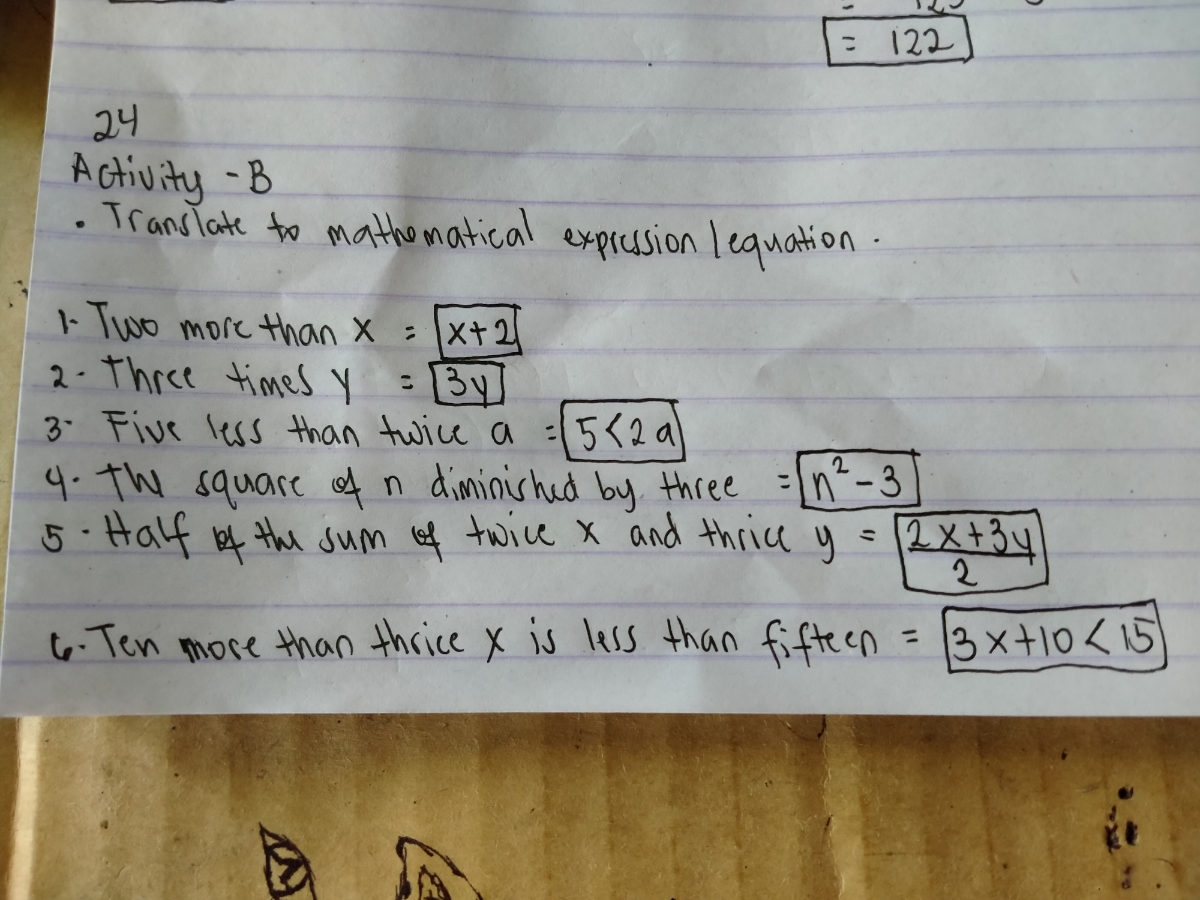 = 122
24
Activity - B
• Translate to mathematical expression / equation.
1. Two more than x = x+2
2. Three times y = 3y
3. Five less than twice a = 5<2a
4. The square of n diminished by three = n² - 3
5. Half of the sum of twice x and thrice y = 2x+3y
2
6. Ten more than thrice x is less than fifteen = 3x+10<15